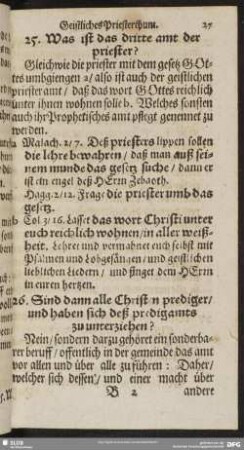 Geistliches Priesterthum. 27
25. Was ist das dritte amt der
priester?
Gleichwie die priester mit dem gesetz GOt-
tes umbgiengen a/ also ist auch der geistlichen
priester amt/ daß das wort GOttes reichlich
unter ihnen wohnen solle b. Welches sonsten
auch ihr Prophetisches amt pflegt genennet zu
werden.
a Malach. 2/7. Deß priesters lippen sollen
die lehre bewahren/ daß man auß sei-
nem munde das gesetz suche/ dann er
ist ein engel deß HErrn Zebaoth.
Hagg. 2/12. Frage die priester umb das
gesetz.
b Col. 3/16. Lasset das wort Christi unter
euch reichlich wohnen/ in aller weiß-
heit. Lehret und vermahnet euch selbst mit
Psalmen und Lobgesängen/ und geistlichen
lieblichen Liedern/ und singet dem HErrn
in euren hertzen.
26. Sind dann alle Christen prediger/
und haben sich deß predigamts
zu unterziehen?
Nein/ sondern darzu gehöret ein sonderba-
rer beruff/ offentlich in der gemeinde das amt
vor allen und über alle zu führen: Daher/
welcher sich dessen/ und einer macht über
B 2 andere